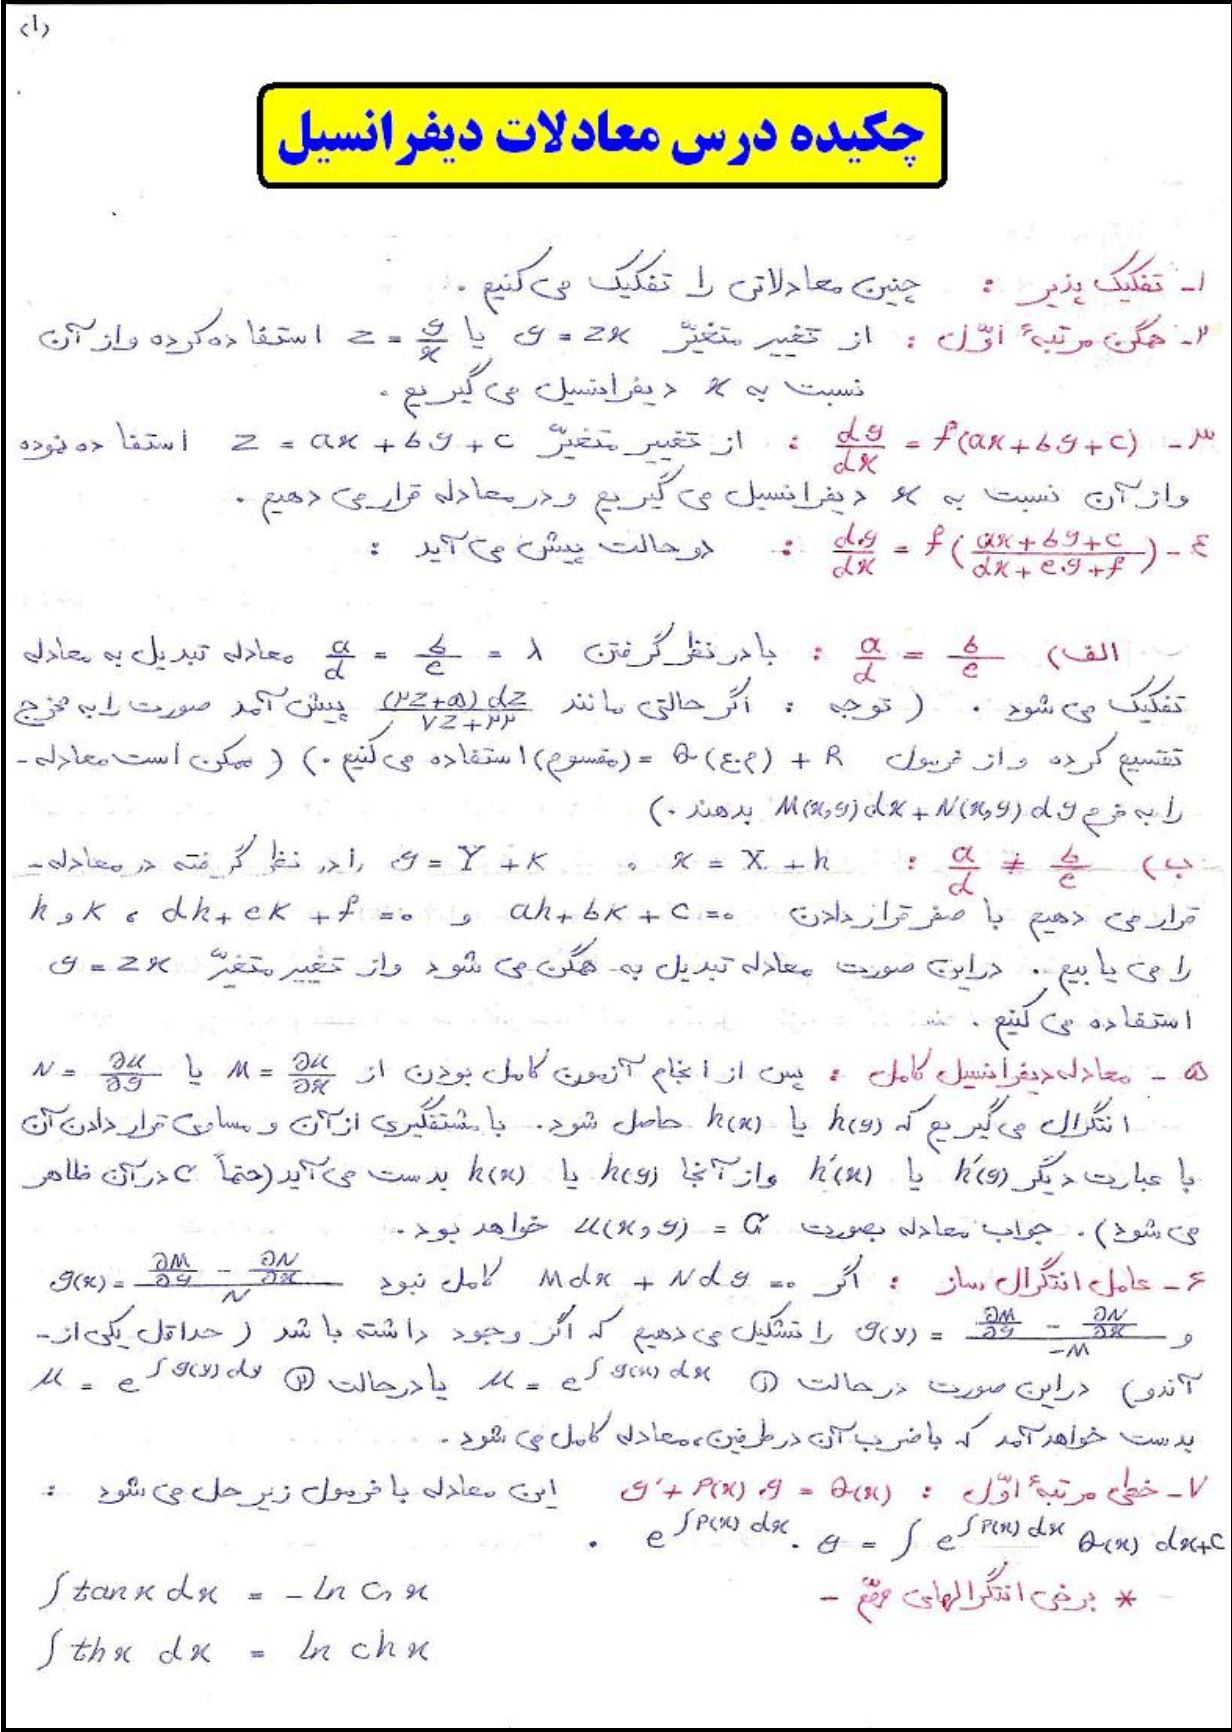 (۱)
چکیده درس معادلات دیفرانسیل
۱- تفکیک پذیر : چنین معادلاتی را تفکیک می کنیم .
۲- همگن مرتبهٔ اوّل : از تغییر متغیّر y = zx یا z = y/x استفاده کرده و از آن
نسبت به x دیفرانسیل می گیریم .
۳- dy/dx = f(ax+by+c) : از تغییر متغیّر z = ax+by+c استفاده نموده
و از آن نسبت به x دیفرانسیل می گیریم و در معادله قرار می دهیم .
۴- dy/dx = f((ax+by+c)/(dx+ey+f)) : دو حالت پیش می آید :
الف) a/d = b/e : با در نظر گرفتن a/d = b/e = λ معادله تبدیل به معادله
تفکیک می شود . ( توجه : اگر حالتی مانند (۳z+۵)dz/(۷z+۲۳) پیش آمد صورت را به مخرج
تقسیم کرده و از فرمول R + (م.ع)Q = (مقسوم) استفاده می کنیم .) ( ممکن است معادله-
را به فرم M(x,y)dx+N(x,y)dy بدهند .)
ب) a/d ≠ b/e : x = X+h و y = Y+k را در نظر گرفته در معادله-
قرار می دهیم با صفر قرار دادن ah+bk+c=0 و dh+ek+f=0 ، k و h
را می یابیم . در این صورت معادله تبدیل به همگن می شود و از تغییر متغیّر y = zx
استفاده می کنیم .
۵- معادله دیفرانسیل کامل : پس از انجام آزمون کامل بودن از M = ∂u/∂x یا N = ∂u/∂y
انتگرال می گیریم که h(y) یا h(x) حاصل شود. با مشتقگیری از آن و مساوی قرار دادن آن
با عبارت دیگر h′(y) یا h′(x) و از آنجا h(y) یا h(x) بدست می آید (حتماً C در آن ظاهر
می شود) . جواب معادله بصورت u(x,y) = C₁ خواهد بود .
۶- عامل انتگرال ساز : اگر Mdx + Ndy = 0 کامل نبود g(x) = (∂M/∂y - ∂N/∂x)/N
و g(y) = (∂M/∂y - ∂N/∂x)/-M را تشکیل می دهیم که اگر وجود داشته باشد ( حداقل یکی از-
آندو) در این صورت در حالت ① μ = e^∫g(x)dx یا در حالت ② μ = e^∫g(y)dy
بدست خواهد آمد که با ضرب آن در طرفین، معادله کامل می شود .
۷- خطی مرتبهٔ اوّل : y′+P(x).y = Q(x) این معادله با فرمول زیر حل می شود :
e^∫P(x)dx . y = ∫ e^∫P(x)dx Q(x) dx+c .
* برخی انتگرالهای مهمّ -
∫tanx dx = -ln cos x
∫thx dx = ln chx